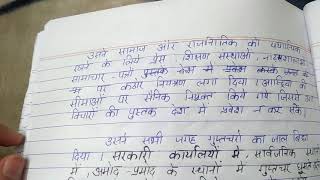 उसने समाज और राजनीतिक को यथास्थिति
रखने के लिये प्रेस, शिक्षण संस्थाओं, नाट्यशालाओं
समाचार पत्रों पुस्तक
पर कठोर नियंत्रण लगा दिया। आस्ट्रिया की
सीमाओं पर सैनिक नियुक्त किये गये जिससे
विचारों की पुस्तक देश में प्रवेश न कर सके।
उसने सभी जगह गुप्तचरों का जाल बिछा
दिया। सरकारी कार्यालयों में, सार्वजनिक
में, आमोद-प्रमोद के स्थानों में गुप्तचर